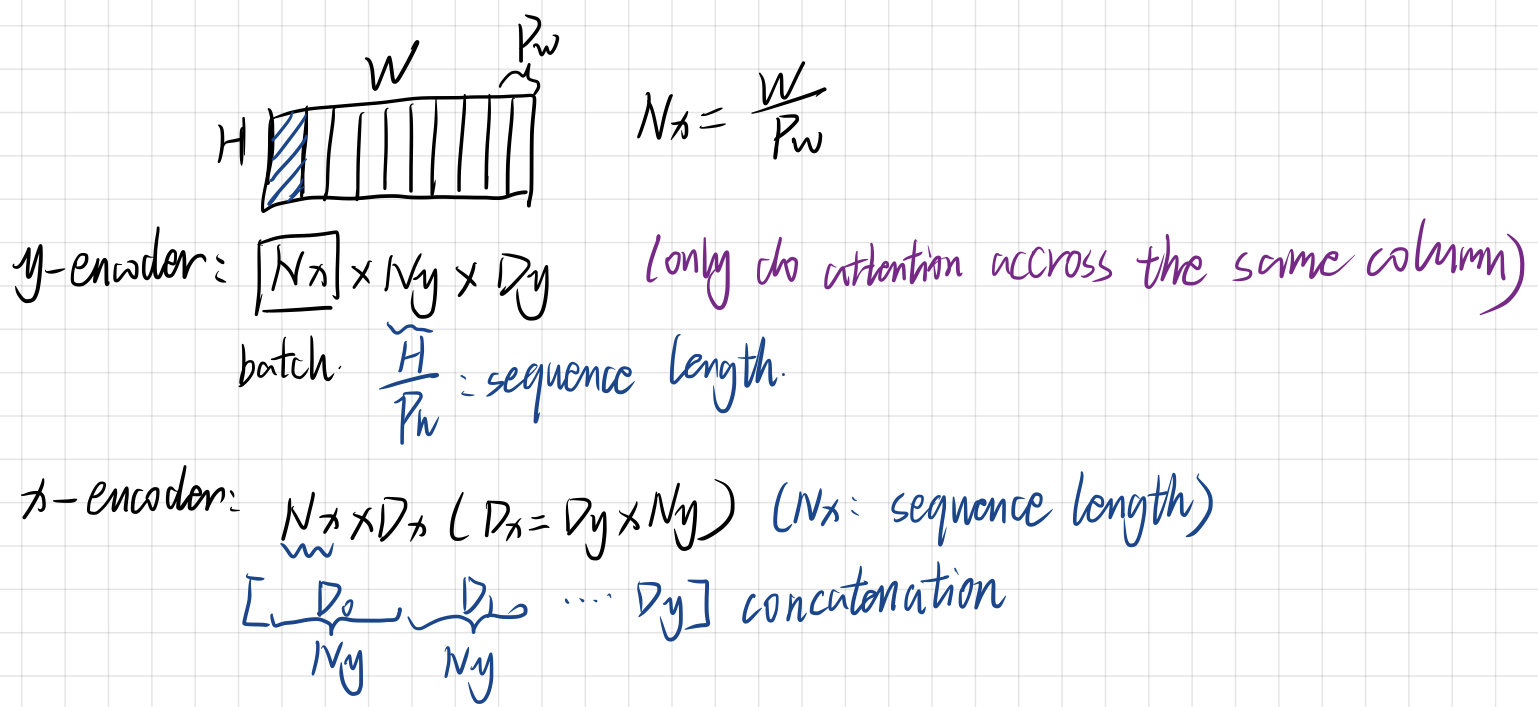 W P_w
H
N_x = W/P_w
y-encoder: [N_x] × N_y × D_y (only do attention accross the same column)
batch. H/P_h : sequence length.
x-encoder: N_x × D_x ( D_x = D_y × N_y ) (N_x: sequence length)
[ D_0 D_1 .... D_y ] concatenation
N_y N_y